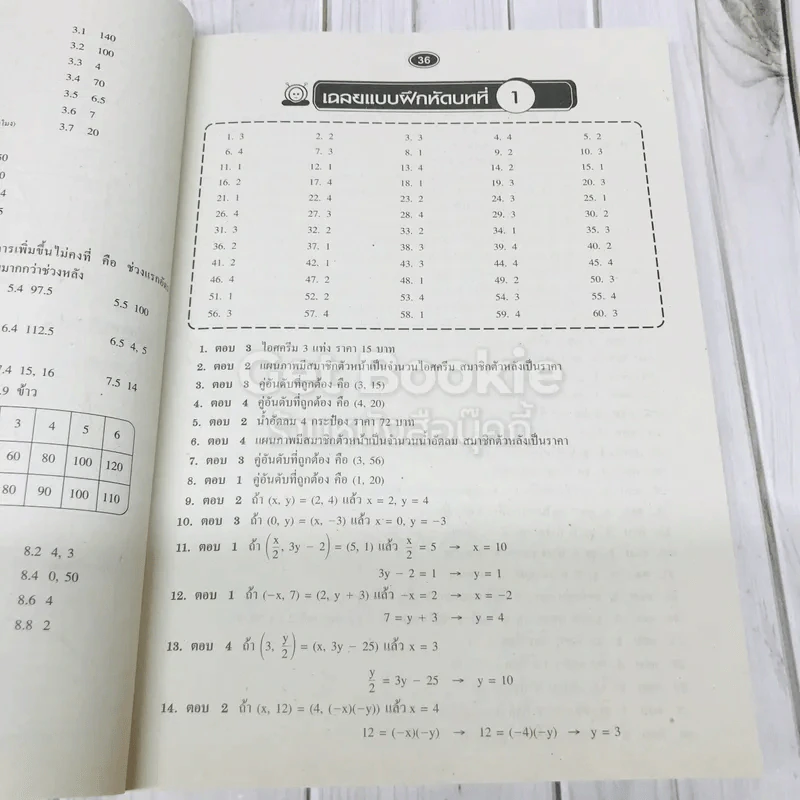 3.1 140
3.2 100
3.3 4
3.4 70
3.5 6.5
3.6 7
3.7 20
คือ ช่วงแรก
มากกว่าช่วงหลัง
5.4 97.5
5.5 100
6.4 112.5
6.5 4, 5
7.4 15, 16
7.5 14
ข้าว
3 4 5 6
60 80 100 120
80 90 100 110
8.2 4, 3
8.4 0, 50
8.6 4
8.8 2
36
เฉลยแบบฝึกหัดบทที่ 1
1. 3 2. 2 3. 3 4. 4 5. 2
6. 4 7. 3 8. 1 9. 2 10. 3
11. 1 12. 1 13. 4 14. 2 15. 1
16. 2 17. 4 18. 1 19. 3 20. 3
21. 1 22. 4 23. 2 24. 3 25. 1
26. 4 27. 3 28. 4 29. 3 30. 2
31. 3 32. 2 33. 2 34. 1 35. 3
36. 2 37. 1 38. 3 39. 4 40. 2
41. 2 42. 1 43. 3 44. 4 45. 4
46. 4 47. 2 48. 1 49. 2 50. 3
51. 1 52. 2 53. 4 54. 3 55. 4
56. 3 57. 4 58. 1 59. 4 60. 3
1. ตอบ 3 ไอศครีม 3 แท่ง ราคา 15 บาท
2. ตอบ 2 แผนภาพมีสมาชิกตัวหน้าเป็นจำนวนไอศครีม สมาชิกตัวหลังเป็นราคา
3. ตอบ 3 คู่อันดับที่ถูกต้อง คือ (3, 15)
4. ตอบ 4 คู่อันดับที่ถูกต้อง คือ (4, 20)
5. ตอบ 2 น้ำอัดลม 4 กระป๋อง ราคา 72 บาท
6. ตอบ 4 แผนภาพมีสมาชิกตัวหน้าเป็นจำนวนน้ำอัดลม สมาชิกตัวหลังเป็นราคา
7. ตอบ 3 คู่อันดับที่ถูกต้อง คือ (3, 56)
8. ตอบ 1 คู่อันดับที่ถูกต้อง คือ (1, 20)
9. ตอบ 2 ถ้า (x, y) = (2, 4) แล้ว x = 2, y = 4
10. ตอบ 3 ถ้า (0, y) = (x, −3) แล้ว x = 0, y = −3
11. ตอบ 1 ถ้า (x/2, 3y − 2) = (5, 1) แล้ว x/2 = 5 → x = 10
3y − 2 = 1 → y = 1
12. ตอบ 1 ถ้า (−x, 7) = (2, y + 3) แล้ว −x = 2 → x = −2
7 = y + 3 → y = 4
13. ตอบ 4 ถ้า (3, y/2) = (x, 3y − 25) แล้ว x = 3
y/2 = 3y − 25 → y = 10
14. ตอบ 2 ถ้า (x, 12) = (4, (−x)(−y)) แล้ว x = 4
12 = (−x)(−y) → 12 = (−4)(−y) → y = 3
GetBookie
ร้านหนังสือบุ๊คกี้